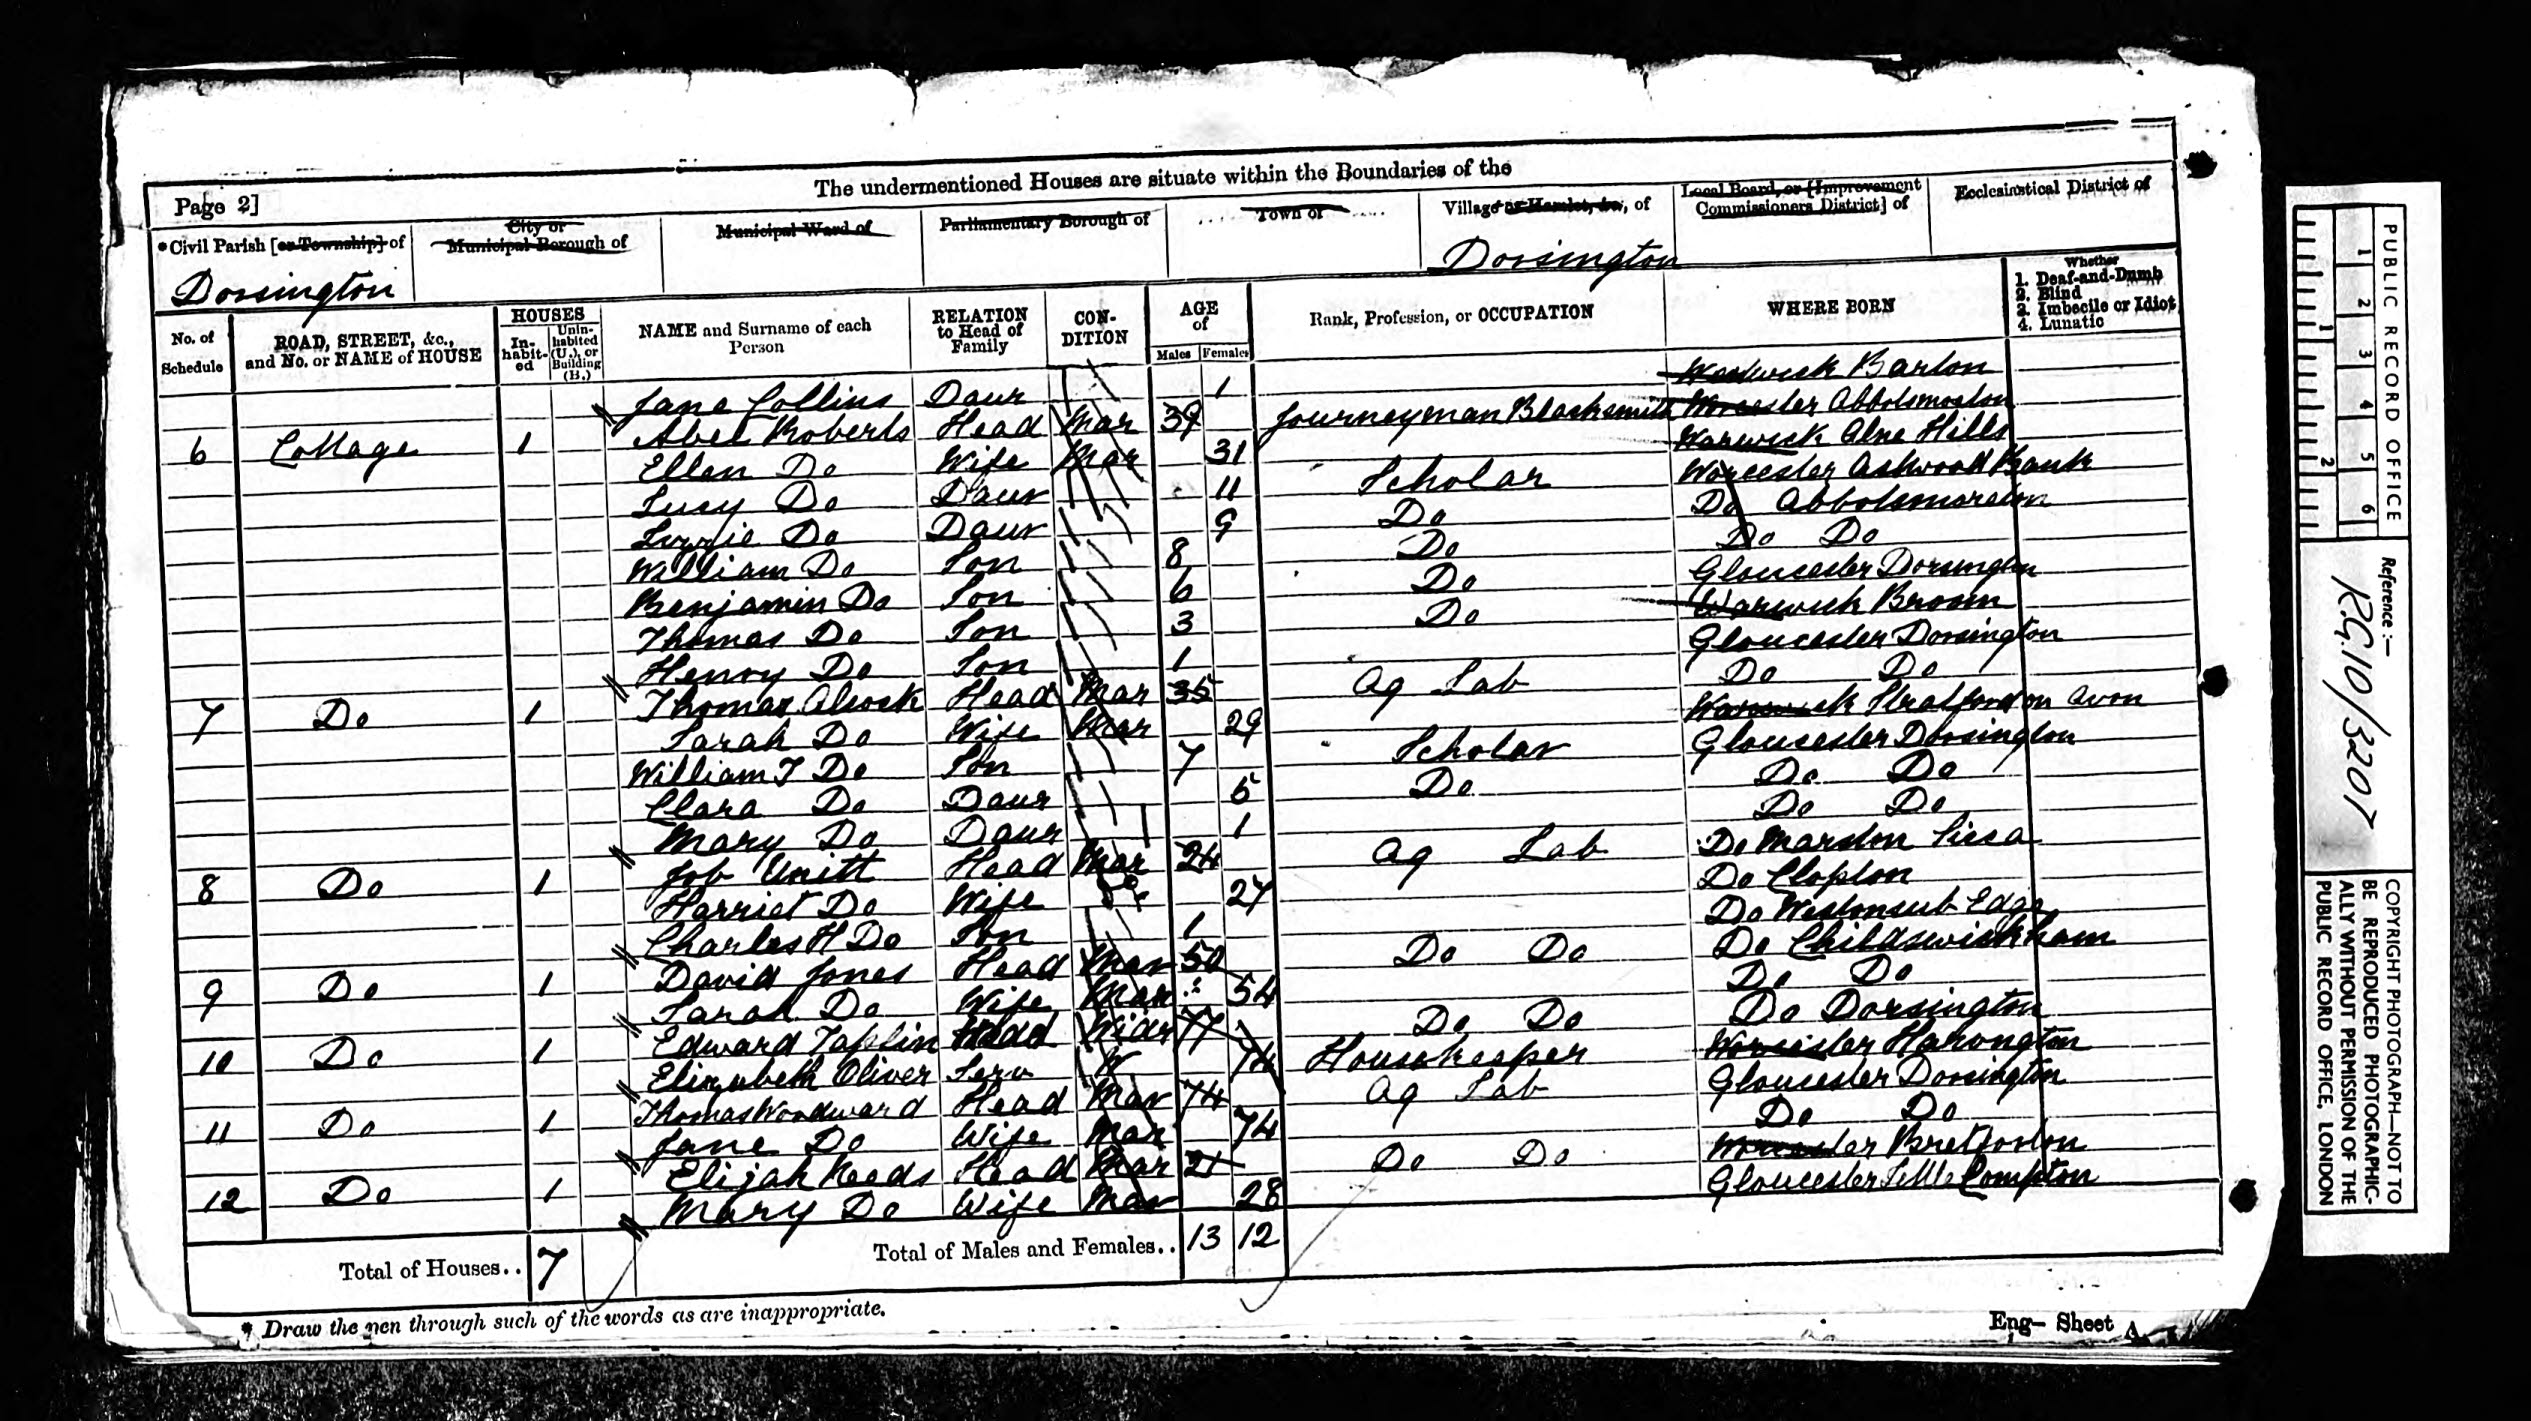 The undermentioned Houses are situate within the Boundaries of the
Page 2]
*Civil Parish [or Township] of
Dorsington
City or Municipal Borough of
Municipal Ward of
Parliamentary Borough of
Town of
Village or Hamlet, &c., of
Dorsington
Local Board, or [Improvement Commissioners District] of
Ecclesiastical District of
No. of Schedule
ROAD, STREET, &c., and No. or NAME of HOUSE
HOUSES
In-habit-ed
Unin-habited (U.), or Building (B.)
NAME and Surname of each Person
RELATION to Head of Family
CON-DITION
AGE of
Males Females
Rank, Profession, or OCCUPATION
WHERE BORN
Whether
1. Deaf-and-Dumb
2. Blind
3. Imbecile or Idiot
4. Lunatic
Jane Collins Daur 1 Warwick Barton
6 Cottage 1 Abel Roberts Head Mar 39 Journeyman Blacksmith Worcester Abbotsmorton
Ellen Do Wife Mar 31 Warwick Alne Hills
Lucy Do Daur 11 Scholar Worcester Astwood Bank
Lizzie Do Daur 9 Do Do Abbotsmorton
William Do Son 8 Do Do Do
Benjamin Do Son 6 Do Gloucester Dorsington
Thomas Do Son 3 Do Warwick Broom
Henry Do Son 1 Gloucester Dorsington
7 Do 1 Thomas Alcock Head Mar 35 Ag Lab Do Do
Sarah Do Wife Mar 29 Warwick Stratford on Avon
William T Do Son 7 Scholar Gloucester Dorsington
Clara Do Daur 5 Do Do Do
Mary Do Daur 1 Do Do
8 Do 1 Job Unitt Head Mar 24 Ag Lab Do Marston Sicca
Harriet Do Wife Do 27 Do Clopton
Charles H Do Son 1 Do Weston sub Edge
9 Do 1 David Jones Head Mar 50 Do Do Do Childswickham
Sarah Do Wife Mar 54 Do Do
10 Do 1 Edward Taplin Head Widr 77 Do Do Do Dorsington
Elizabeth Oliver Serv W 74 Housekeeper Worcester
11 Do 1 Thomas Woodward Head Mar 74 Ag Lab Gloucester Dorsington
Jane Do Wife Mar 74 Do Do
12 Do 1 Elijah Keeds Head Mar 21 Do Do Worcester Bretforton
Mary Do Wife Mar 28 Gloucester Little Compton
Total of Houses.. 7
Total of Males and Females.. 13 12
* Draw the pen through such of the words as are inappropriate.
Eng— Sheet A.
PUBLIC RECORD OFFICE
1 2 3 4 5 6
1 2
Reference :—
R.G.10/3207
COPYRIGHT PHOTOGRAPH—NOT TO
BE REPRODUCED PHOTOGRAPHIC-
ALLY WITHOUT PERMISSION OF THE
PUBLIC RECORD OFFICE, LONDON